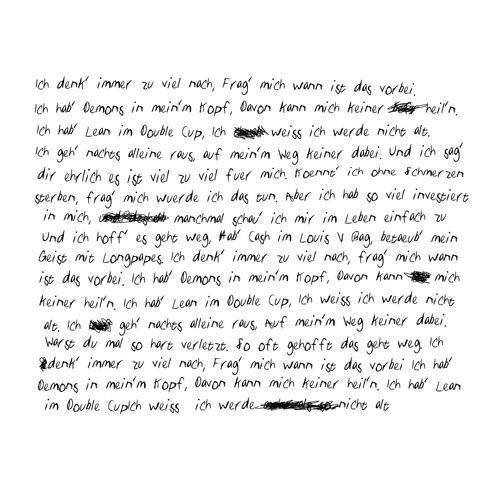 Ich denk' immer zu viel nach, Frag' mich wann ist das vorbei.
Ich hab' Demons in mein'm Kopf, Davon kann mich keiner heil'n.
Ich hab' Lean im Double Cup, Ich weiss ich werde nicht alt.
Ich geh' nachts alleine raus, auf mein'm Weg keiner dabei. Und ich sag'
dir ehrlich es ist viel zu viel fuer mich. Koennt' ich ohne Schmerzen
sterben, frag' mich wuerde ich das tun. Aber ich hab so viel investiert
in mich, manchmal schau' ich mir im Leben einfach zu
Und ich hoff' es geht weg, Hab' Cash im Louis V Bag, betaeub' mein
Geist mit Longpapes. Ich denk' immer zu viel nach, frag' mich wann
ist das vorbei. Ich hab' Demons in mein'm Kopf, Davon kann mich
keiner heil'n. Ich hab' Lean im Double Cup, Ich weiss ich werde nicht
alt. Ich geh' nachts alleine raus, Auf mein'm Weg keiner dabei.
Warst du mal so hart verletzt. So oft gehofft das geht weg. Ich
denk' immer zu viel nach, Frag' mich wann ist das vorbei Ich hab'
Demons in mein'm Kopf, Davon kann mich keiner heil'n. Ich hab' Lean
im Double CupIch weiss ich werde nicht alt